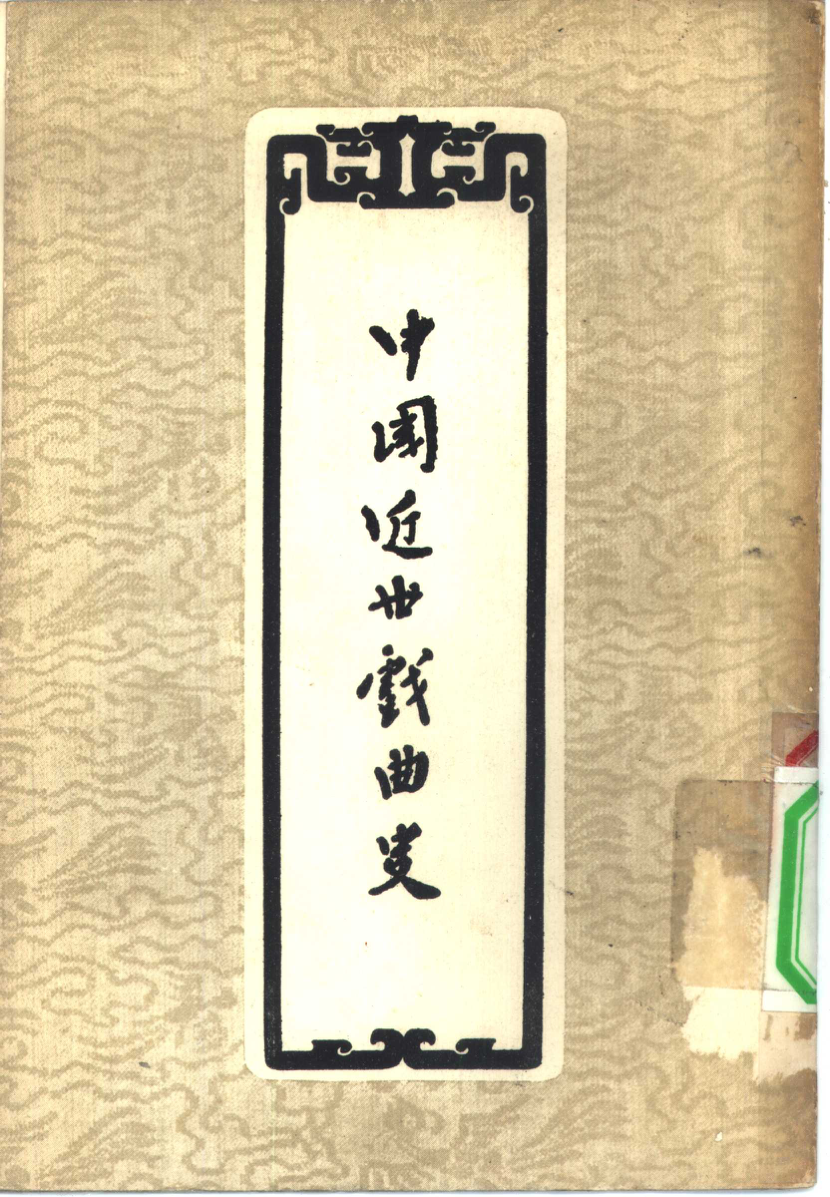 中国近世戲曲史